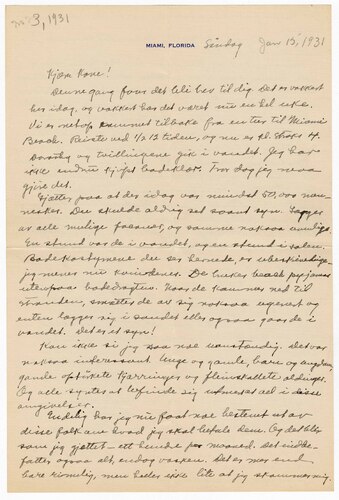 no 3, 1931
MIAMI, FLORIDA
Söndag Jan 15, 1931
Kjære Kone!
Denne gang faar det bli brev til dig. Det er vakkert
her idag, og vakkert har det været nu en hel uke.
Vi er netop kommet tilbake fra en tur til Miami
Beach. Reiste ved ½ 12 tiden, og nu er kl. straks 4.
Dorothy og tvillingene gik i vandet. Jeg har
ikke endnu kjøpt badeklær. Em dag jeg maa
gjøre det.
Gjetter paa at der idag var mindst 50,000 men-
nesker. Du skulde aldrig set saant syn. Ligger
i alle mulige fasonger, og somme naksaa urolig.
En stund var de i vandet, og en stund i solen.
Badekostymene du ser hernede, er
jeg mener nu kvindenes. De bruker beach pyjamas
utenpaa badedragten. Naar de kommer ned til
stranden, smetter de av sig noksaa ugenert og
enten lægger sig i sandet eller ogsaa gaar de i
vandet. Det er et syn!
Kan ikke si jeg saa noe uanstændig. Det var
noksaa interessant. Unge og gamle, bare og
gamle kjerringer og flinskallete oldinger.
Og alle syntes at befinde sig udmerket ad i disse
omgivelser.
Endelig har jeg nu faat noe bestemt ut av
disse folk om hvad jeg skal betale dem. Og det blev
som jeg gjettet - ett hundre pr maaned. Det indbe-
fatter ogsaa alt, endog vasken. Det er mer end
bare rimelig, men heller ikke lite at jeg skammer mig.